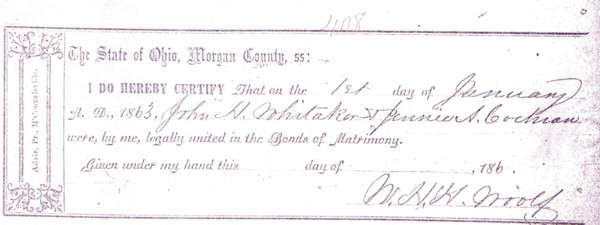 408
The State of Ohio, Morgan County, ss:
I DO HEREBY CERTIFY That on the 1st day of January
A. D., 1863, John H. Whitaker & Jennie A. Cochran
were, by me, legally united in the Bonds of Matrimony.
Given under my hand this day of , 186 .
W. H. H. Woolf
Adair, Pr., M'Connelsville.